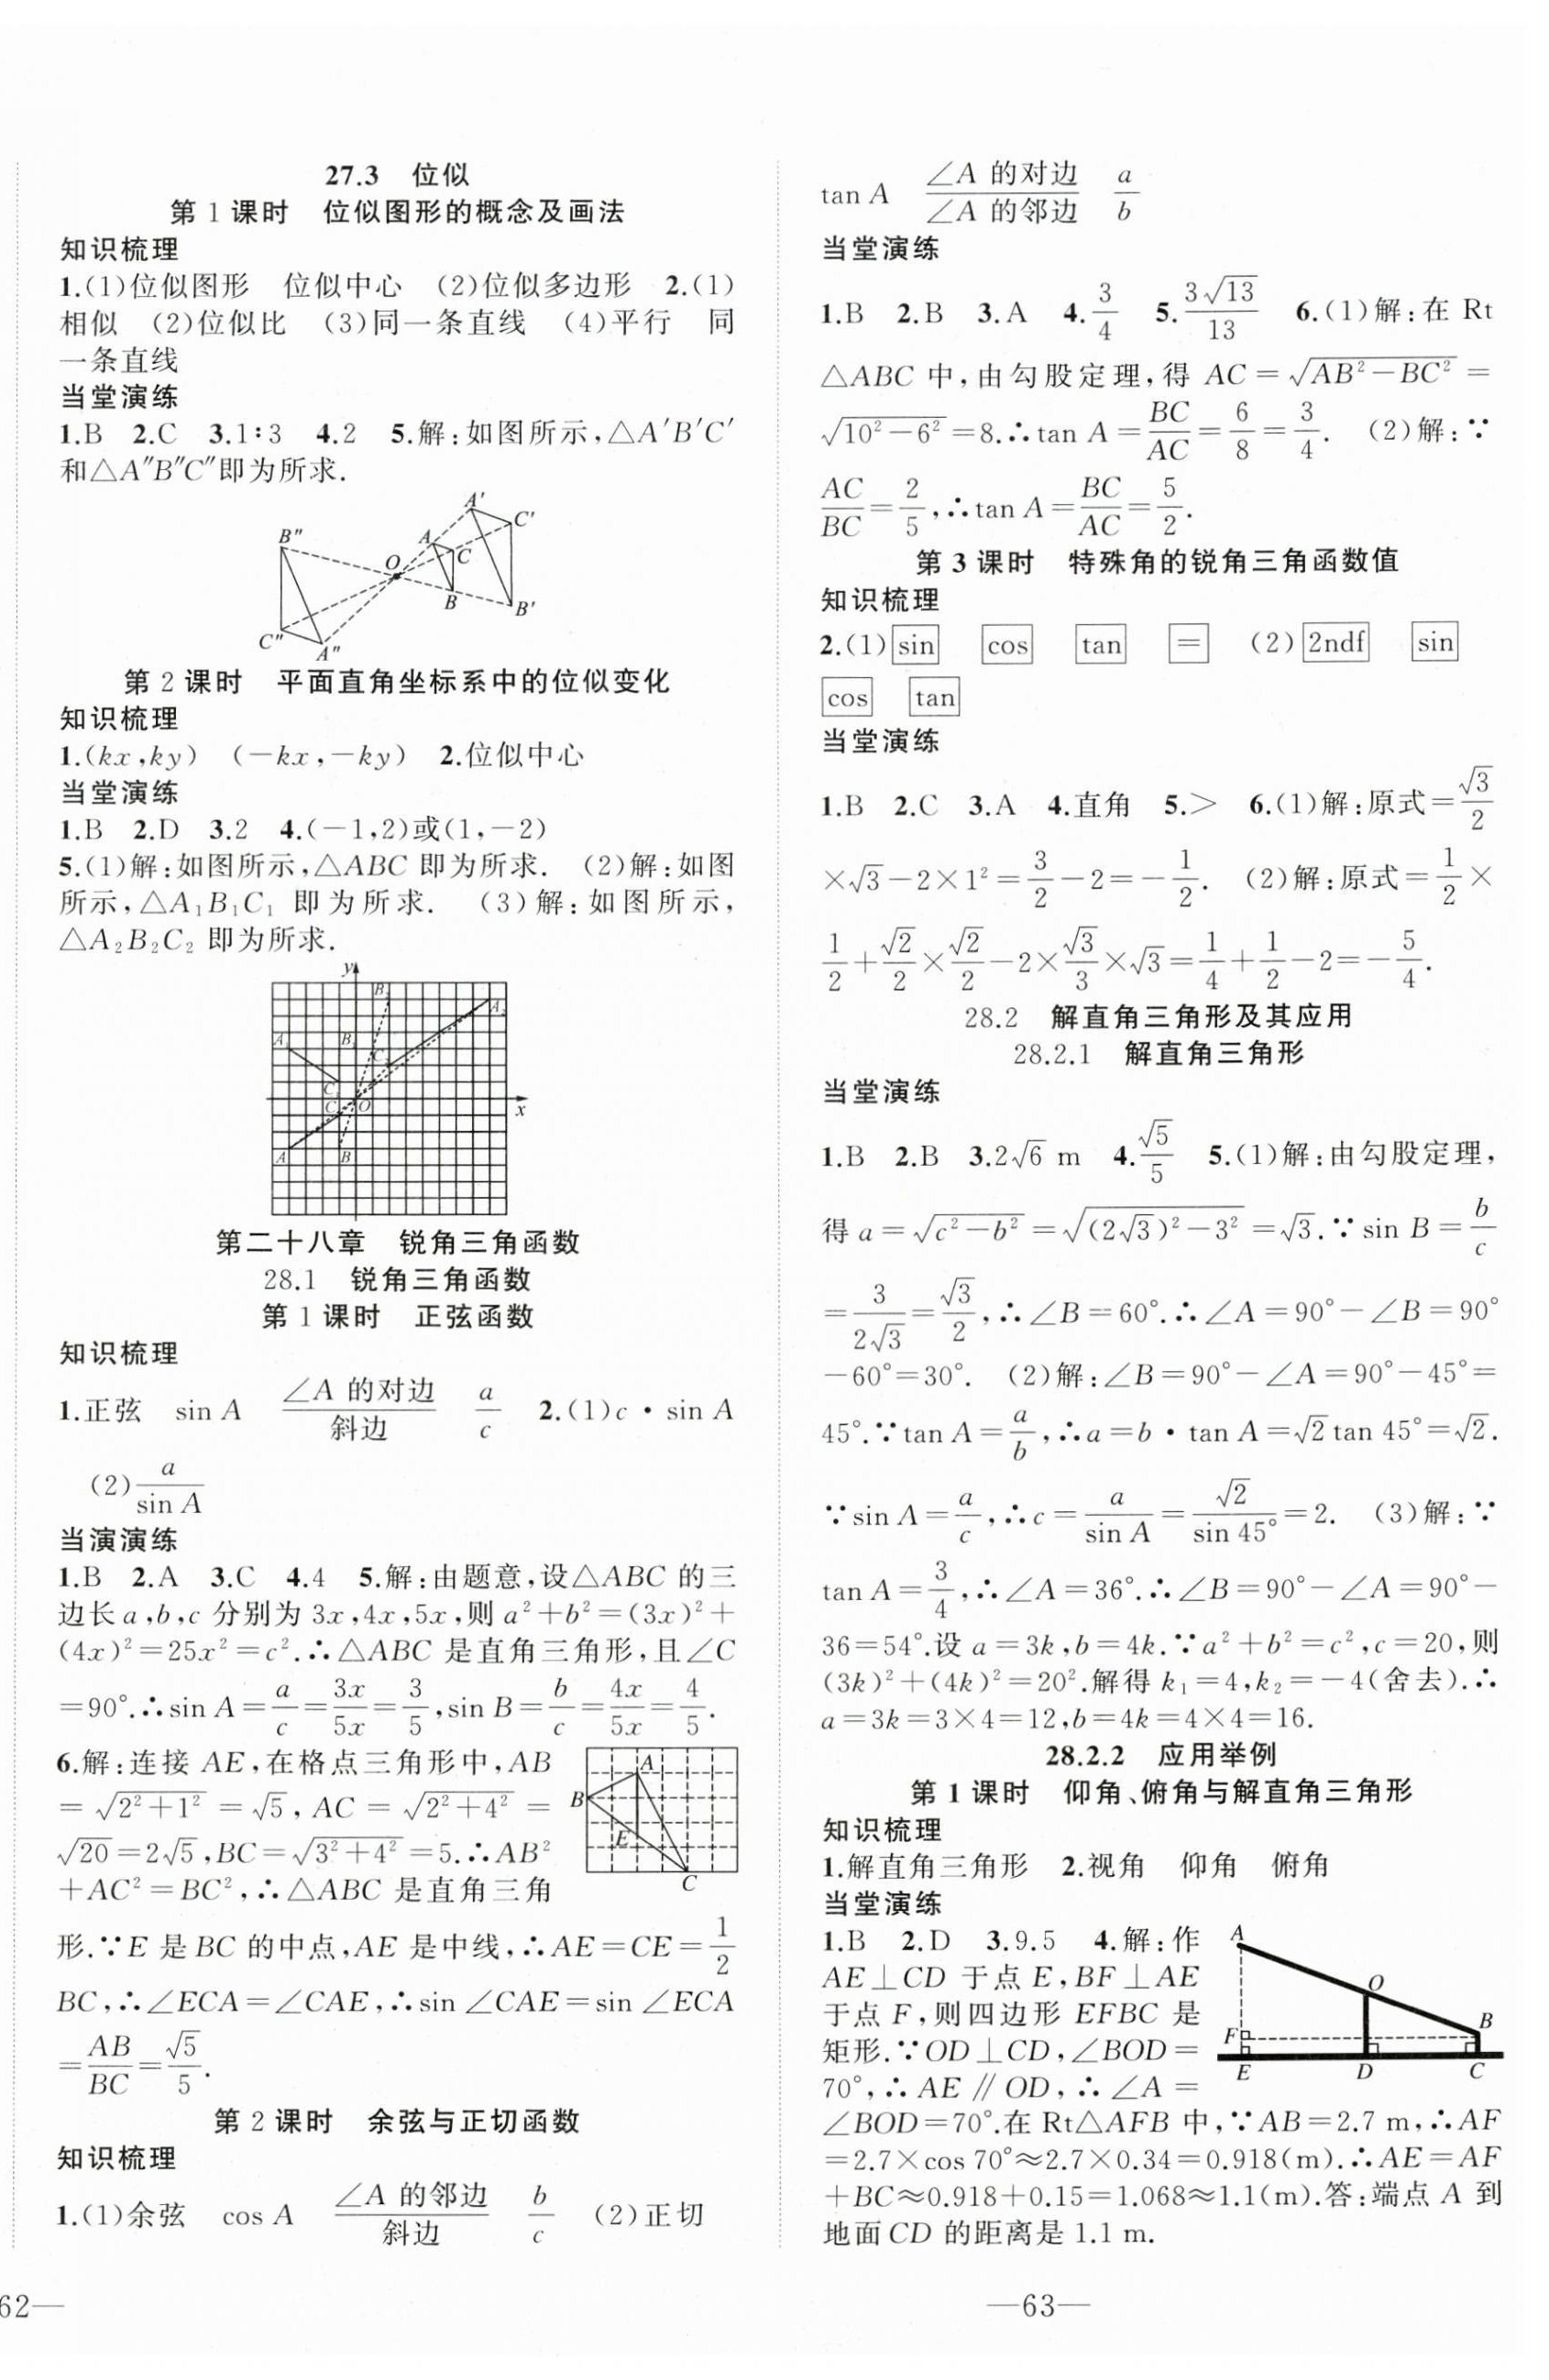 27.3 位似
第 1 课时 位似图形的概念及画法
知识梳理
1.(1)位似图形 位似中心 (2)位似多边形 2.(1)
相似 (2)位似比 (3)同一条直线 (4)平行 同
一条直线
当堂演练
1.B 2.C 3.1∶3 4.2 5.解:如图所示,△A′B′C′
和△A″B″C″即为所求.
A′
C′
B″
A
O
C
B
B′
C″
A″
第 2 课时 平面直角坐标系中的位似变化
知识梳理
1.(kx,ky) (-kx,-ky) 2.位似中心
当堂演练
1.B 2.D 3.2 4.(-1,2)或(1,-2)
5.(1)解:如图所示,△ABC 即为所求. (2)解:如图
所示,△A₁B₁C₁ 即为所求. (3)解:如图所示,
△A₂B₂C₂ 即为所求.
y
B₂
A₂
A₁ B₁
C₂
C₁
C O
x
A B
第二十八章 锐角三角函数
28.1 锐角三角函数
第 1 课时 正弦函数
知识梳理
1.正弦 sin A ∠A 的对边/斜边 a/c 2.(1)c·sin A
(2)a/sin A
当演演练
1.B 2.A 3.C 4.4 5.解:由题意,设△ABC 的三
边长 a,b,c 分别为 3x,4x,5x,则 a²+b²=(3x)²+
(4x)²=25x²=c².∴△ABC 是直角三角形,且∠C
=90°.∴sin A=a/c=3x/5x=3/5,sin B=b/c=4x/5x=4/5.
6.解:连接 AE,在格点三角形中,AB
=√(2²+1²)=√5,AC=√(2²+4²)=
√20=2√5,BC=√(3²+4²)=5.∴AB²
+AC²=BC²,∴△ABC 是直角三角
A
B
E
C
形.∵E 是 BC 的中点,AE 是中线,∴AE=CE=1/2
BC,∴∠ECA=∠CAE,∴sin∠CAE=sin∠ECA
=AB/BC=√5/5.
第 2 课时 余弦与正切函数
知识梳理
1.(1)余弦 cos A ∠A 的邻边/斜边 b/c (2)正切
62—
tan A ∠A 的对边/∠A 的邻边 a/b
当堂演练
1.B 2.B 3.A 4.3/4 5.3√13/13 6.(1)解:在 Rt
△ABC 中,由勾股定理,得 AC=√(AB²-BC²)=
√(10²-6²)=8.∴tan A=BC/AC=6/8=3/4. (2)解:∵
AC/BC=2/5,∴tan A=BC/AC=5/2.
第 3 课时 特殊角的锐角三角函数值
知识梳理
2.(1)sin cos tan = (2)2ndf sin
cos tan
当堂演练
1.B 2.C 3.A 4.直角 5.> 6.(1)解:原式=√3/2
×√3-2×1²=3/2-2=-1/2. (2)解:原式=1/2×
1/2+√2/2×√2/2-2×√3/3×√3=1/4+1/2-2=-5/4.
28.2 解直角三角形及其应用
28.2.1 解直角三角形
当堂演练
1.B 2.B 3.2√6 m 4.√5/5 5.(1)解:由勾股定理,
得 a=√(c²-b²)=√((2√3)²-3²)=√3.∵sin B=b/c
=3/2√3=√3/2,∴∠B=60°.∴∠A=90°-∠B=90°
-60°=30°. (2)解:∠B=90°-∠A=90°-45°=
45°.∵tan A=a/b,∴a=b·tan A=√2tan 45°=√2.
∵sin A=a/c,∴c=a/sin A=√2/sin 45°=2. (3)解:∵
tan A=3/4,∴∠A=36°.∴∠B=90°-∠A=90°-
36=54°.设 a=3k,b=4k.∵a²+b²=c²,c=20,则
(3k)²+(4k)²=20².解得 k₁=4,k₂=-4(舍去).∴
a=3k=3×4=12,b=4k=4×4=16.
28.2.2 应用举例
第 1 课时 仰角、俯角与解直角三角形
知识梳理
1.解直角三角形 2.视角 仰角 俯角
当堂演练
1.B 2.D 3.9.5 4.解:作
AE⊥CD 于点 E,BF⊥AE
于点 F,则四边形 EFBC 是
矩形.∵OD⊥CD,∠BOD=
70°,∴AE∥OD,∴∠A=
A
O
B
F
E D C
∠BOD=70°.在 Rt△AFB 中,∵AB=2.7 m,∴AF
=2.7×cos 70°≈2.7×0.34=0.918(m).∴AE=AF
+BC≈0.918+0.15=1.068≈1.1(m).答:端点 A 到
地面 CD 的距离是 1.1 m.
—63—